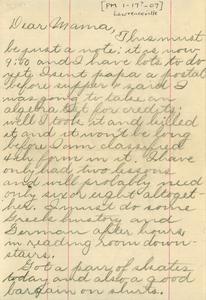 [PM 1-17-07]
Lawrenceville
Dear Mama,
This must
be just a note; it is now
9:00 and I have lots to do
yet. I sent papa a postal
before supper & said I
was going to take an
algebra test for credits;
well I took it and killed
it and it won't be long
before I am classified
4th form in it. I have
only had two lessons
and will probably need
only six or eight altoget-
her. I must do some
Greek history and
German after hours
in reading room down-
stairs.
Got a pair of skates
today and also a good
bargain on shirts.